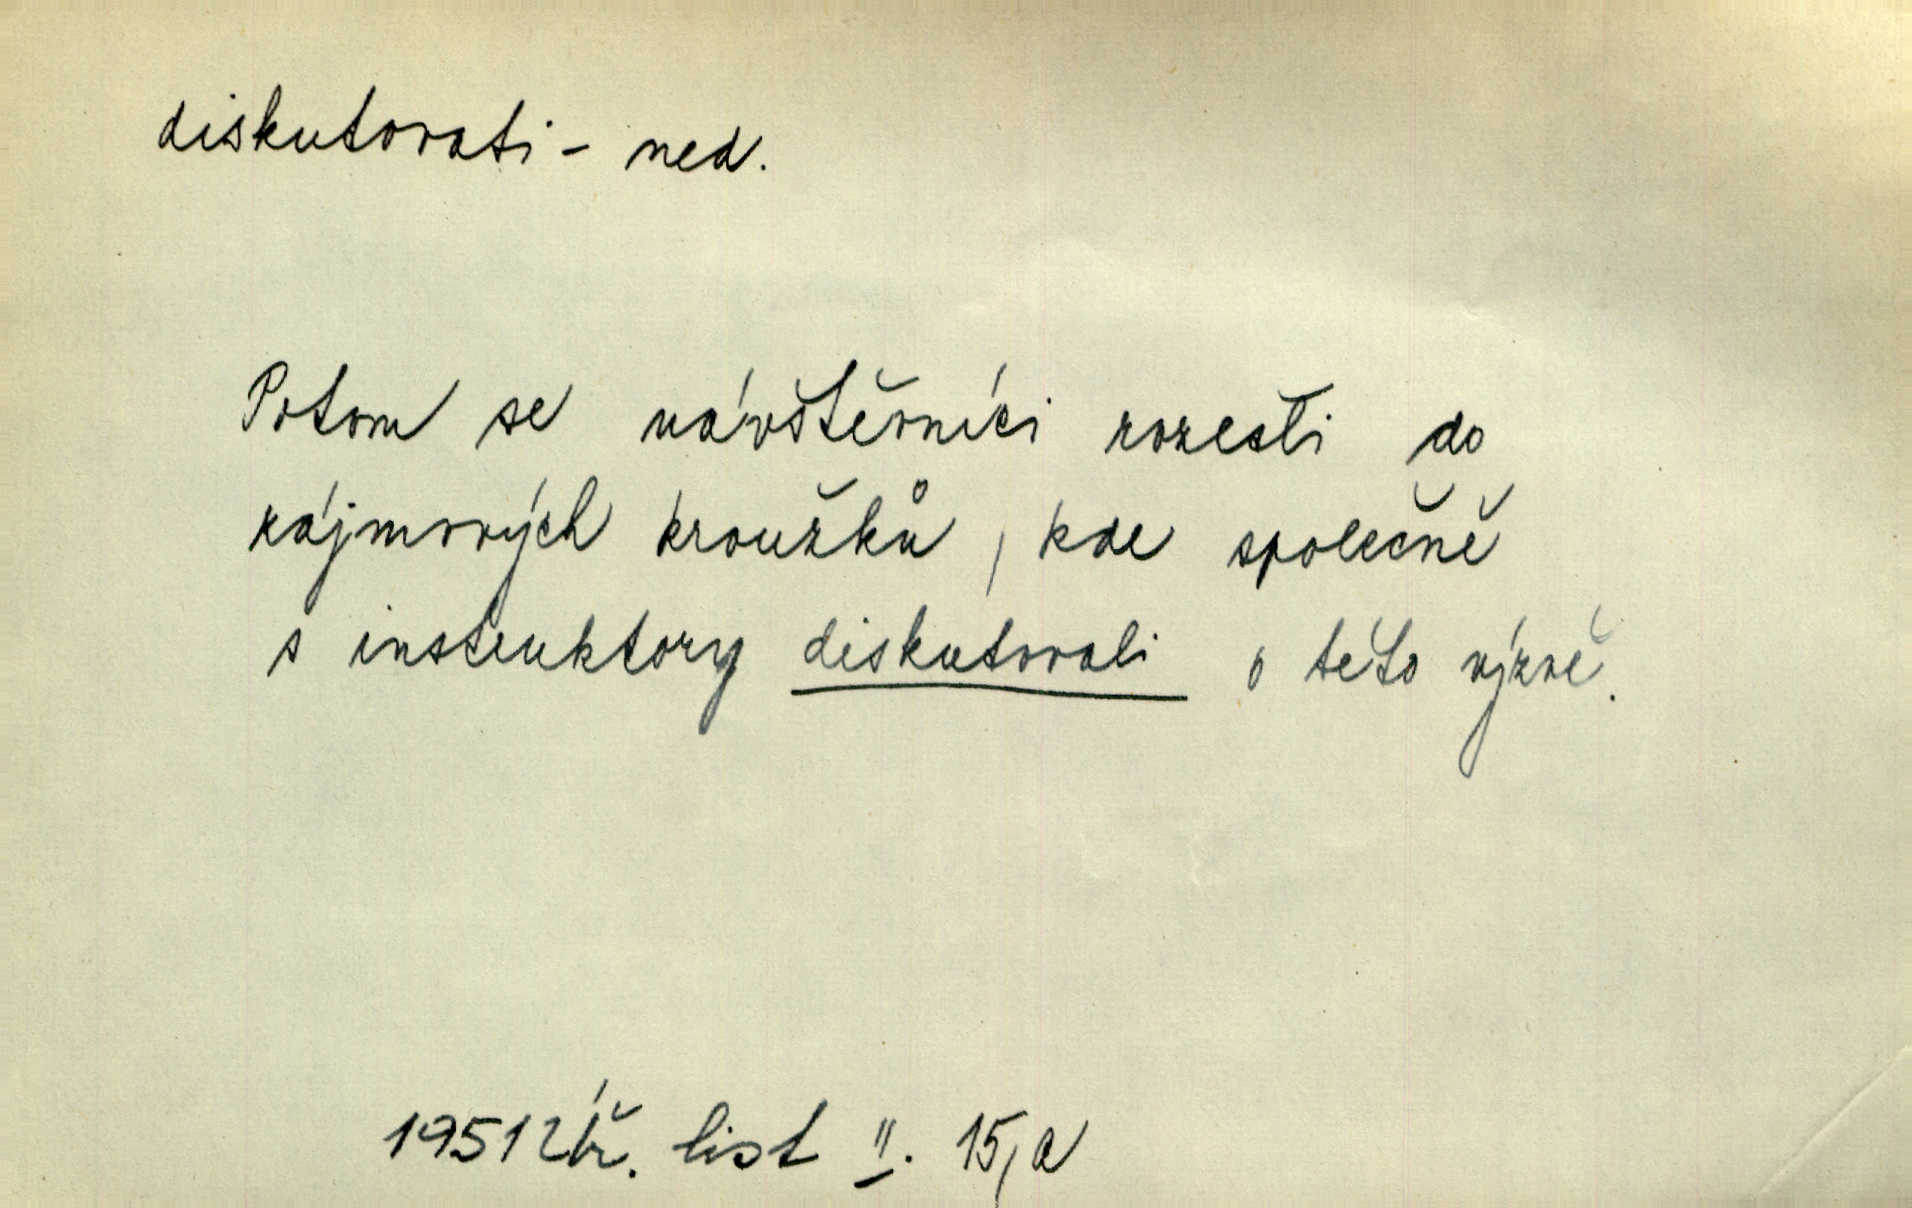 diskutovati - ned.
Potom se návštěvníci rozešli do
zájmových kroužků, kde společně
s instruktory diskutovali o této výzvě.
1951 Úř. list II. 15,a